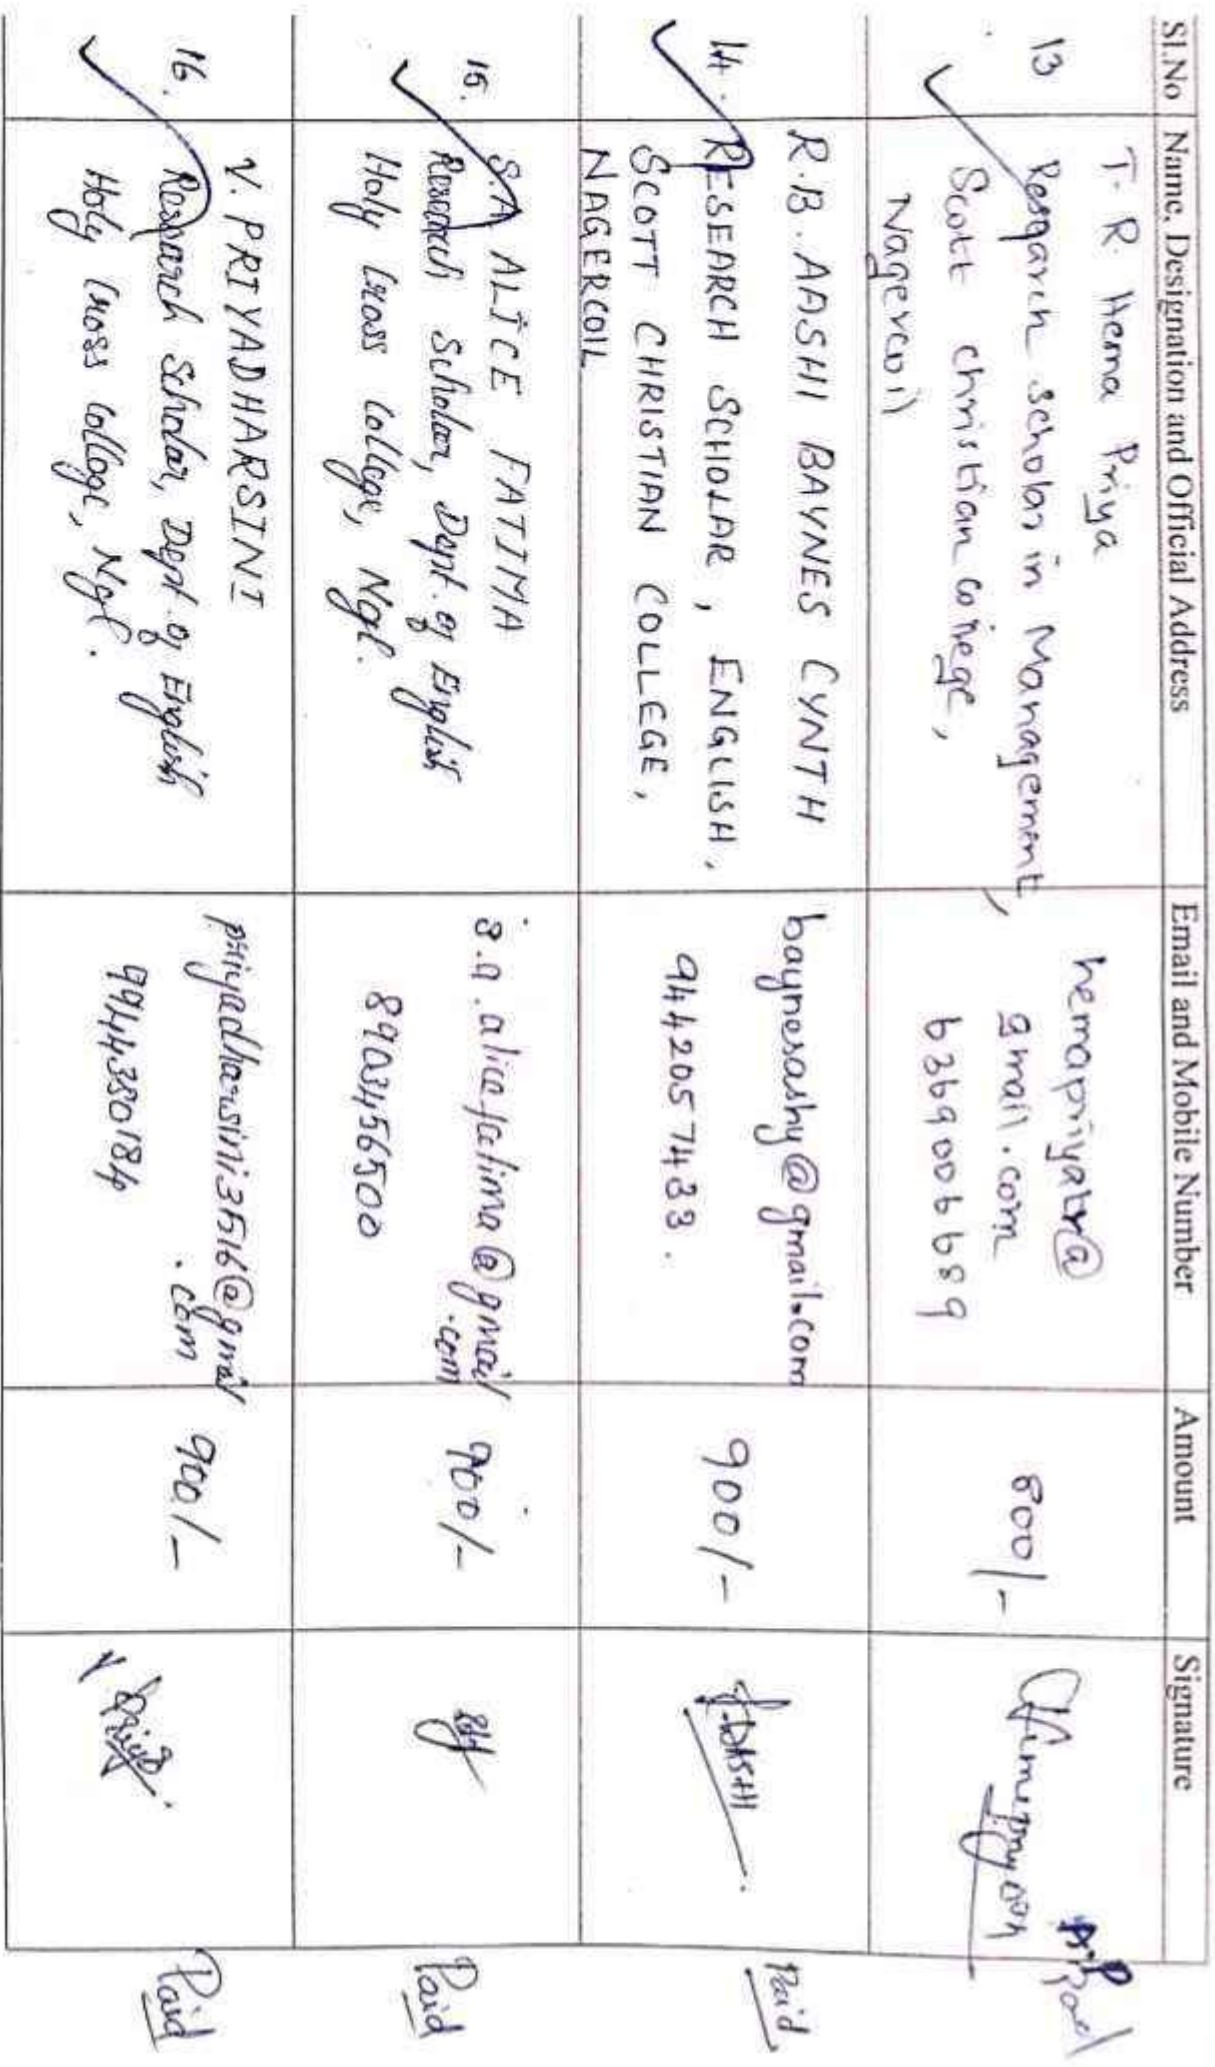 Sl.No Name, Designation and Official Address Email and Mobile Number Amount Signature
13
T. R. Hema Priya
Research scholar in Management,
Scott christian college,
Nagercoil
hemapriyatr@
gmail.com
6369006689
800/-
14.
R.B. AASHI BAYNES CYNTH
RESEARCH SCHOLAR, ENGLISH,
SCOTT CHRISTIAN COLLEGE,
NAGERCOIL
baynesashy@gmail.com
9442057433.
900/-
Paid
15.
S.A ALICE FATIMA
Research Scholar, Dept. of English
Holy Cross College, Ngl.
s.a.alicefatima@gmail
.com
8903456500
900/-
Paid
16.
V. PRIYADHARSINI
Research Scholar, Dept. of English
Holy Cross College, Ngl.
priyadharsini3516@gmail
.com
9944380184
900/-
Paid